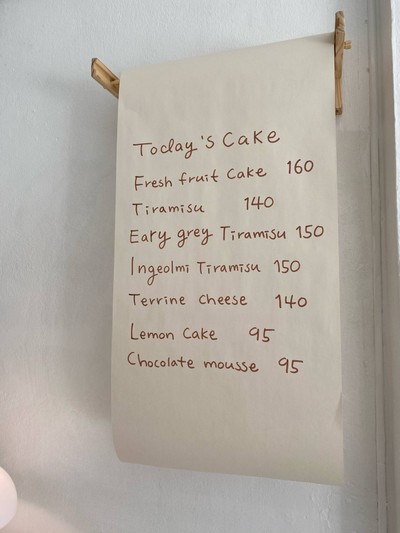 Today's Cake
Fresh fruit Cake 160
Tiramisu 140
Eary grey Tiramisu 150
Ingeolmi Tiramisu 150
Terrine Cheese 140
Lemon Cake 95
Chocolate mousse 95